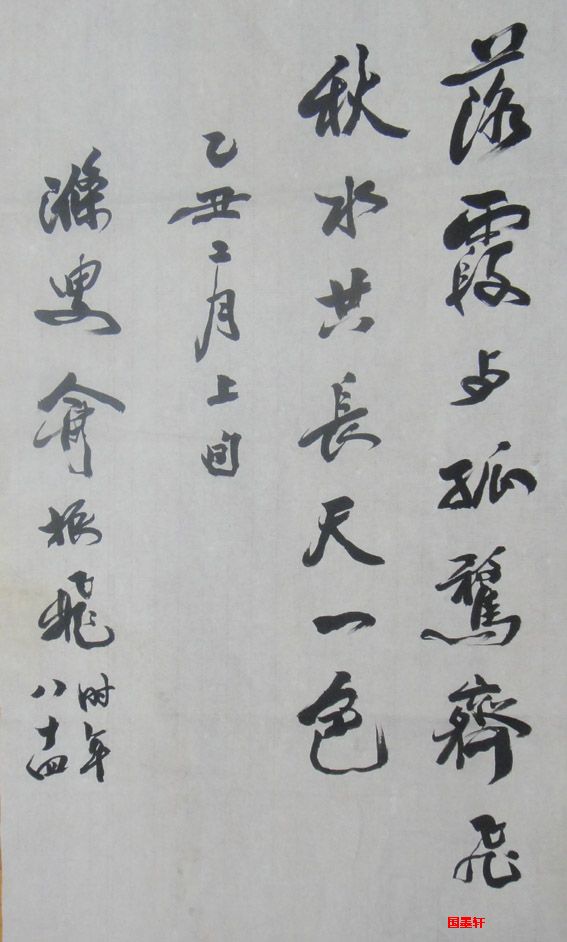 落霞与孤鹜齊飛
秋水共長天一色
乙丑二月上旬
滌叟俞振飛
时年
八十四
国墨轩